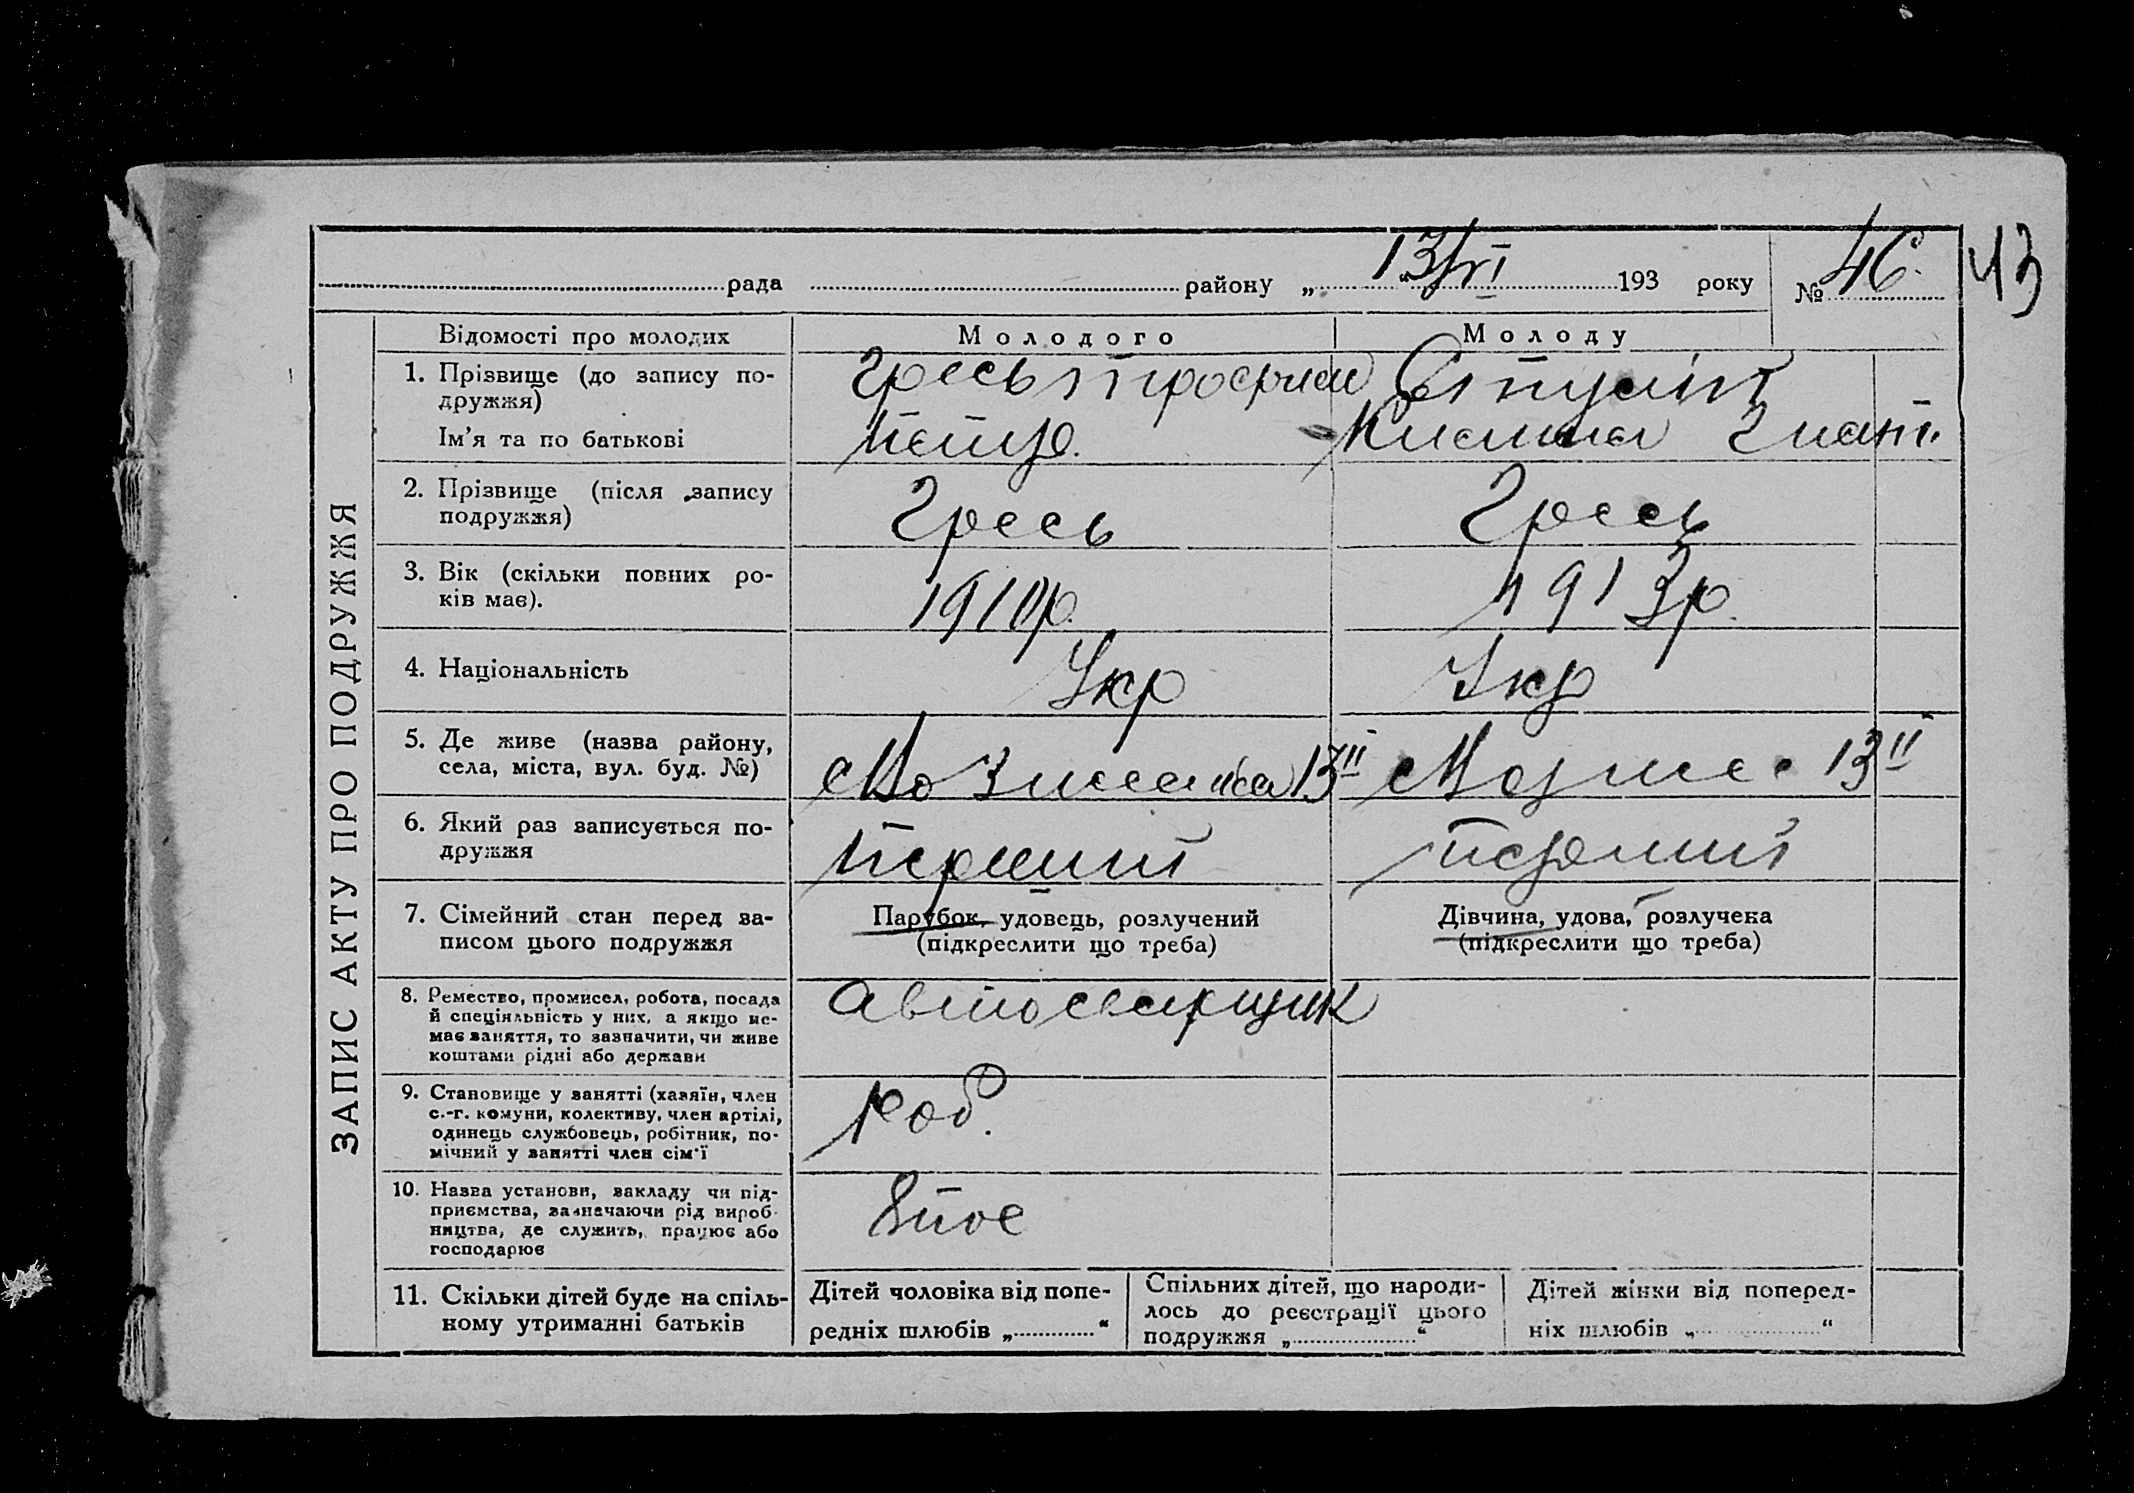 13/VI 43
рада района „ “ 193 року № 46.
ЗАПИС АКТУ ПРО ПОДРУЖЖЯ
Відомості про молодих Молодого Молоду
1. Прізвище (до запису по-
дружжя)
Гресь Трофим
Ім’я та по батькові
Петр.
2. Прізвище (після запису
подружжя)
Гресь Гресь
3. Вік (скільки повних ро-
ків має).
1910р. 1913р.
4. Національність
Укр Укр
5. Де живе (назва району,
села, міста, вул. буд. №)
13 13
6. Який раз записується по-
дружжя
Перший перший
7. Сімейний стан перед за-
писом цього подружжя
Парубок, удовець, розлучений
(підкреслити що треба)
Дівчина, удова, розлучена
(підкреслити що треба)
8. Ремество, промисел, робота, посада
й спеціяльність у них, а якщо не-
має заняття, то зазначити, чи живе
коштами рідні або держави
автосварщик
9. Становище у занятті (хазяїн, член
с.-г. комуни, колективу, член артілі,
одинець службовець, робітник, по-
мічний у занятті член сім’ї
роб.
10. Назва установи, закладу чи під-
приємства, зазначаючи рід вироб-
ництва, де служить, працює або
господарює
11. Скільки дітей буде на спіль-
ному утриманні батьків
Дітей чоловіка від попе-
редніх шлюбів „ “
Спільних дітей, що народи-
лось до реєстрації цього
подружжя „ “
Дітей жінки від поперед-
ніх шлюбів „ “